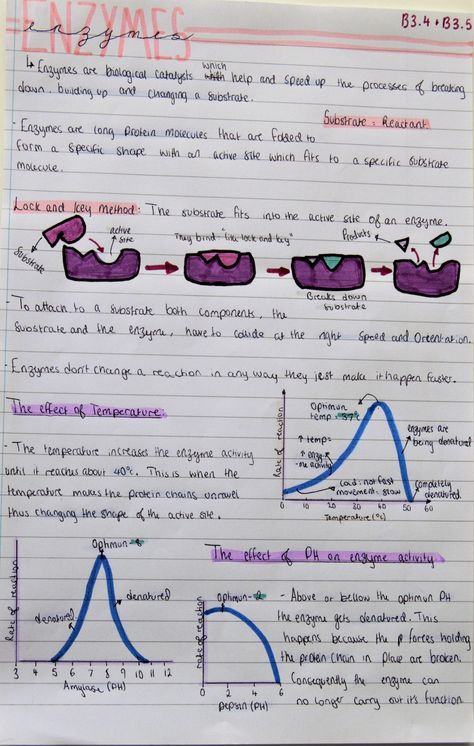 B3.4 + B3.5
ENZYMES
enzymes
↳ Enzymes are biological catalysts which help and speed up the processes of breaking
down, building up and changing a substrate.
Substrate = Reactant
· Enzymes are long protein molecules that are folded to
form a specific shape with an active site which fits to a specific substrate
molecule.
Lock and key method: The substrate fits into the active site of an enzyme.
active site
Substrate
They bind - "like lock and key"
Breaks down substrate
Products
· To attach to a substrate both components, the
substrate and the enzyme, have to collide at the right speed and orientation.
· Enzymes don't change a reaction in any way they just make it happen faster.
The effect of Temperature:
- The temperature increases the enzyme activity
until it reaches about 40°c. This is when the
temperature makes the protein chains unravel
thus changing the shape of the active site.
Rate of reaction
Optimum temp = 37°c
↑ temp =
↑ enzyme activity
Cold: not fast
movement = slow
enzymes are
being denatured
completely
denatured
0 10 20 30 40 50 60
Temperature (°c)
Rate of reaction
Optimun -8
denatured
denatured
3 4 5 6 7 8 9 10 11 12
Amylase (PH)
The effect of PH on enzyme activity
rate of reaction
Optimun - 2
0 2 4 6
pepsin (PH)
- Above or bellow the optimun PH
the enzyme gets denatured. This
happens because the forces holding
the protein chain in place are broken.
Consequently the enzyme can
no longer carry out it's function